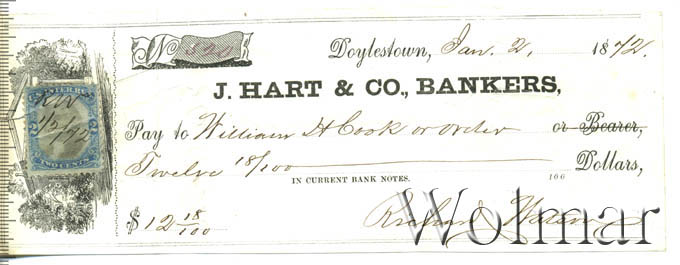 No
Doylestown, Jan. 2, 1872.
J. HART & CO., BANKERS,
Pay to William H Cook or order or Bearer,
Twelve 18/100 Dollars,
IN CURRENT BANK NOTES. 100
$12 18/100 Richard Watson
INTER. REV.
RW
1/2/72
TWO CENTS
Wolmar